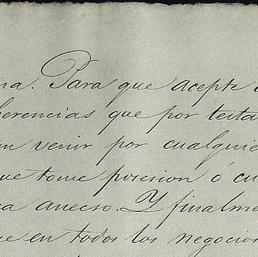 na. Para que acepte
herencias que por testa
n venir por cualquie
ue tome posesion ó cu
a anecso. Y finalme
ue en todos los negocios